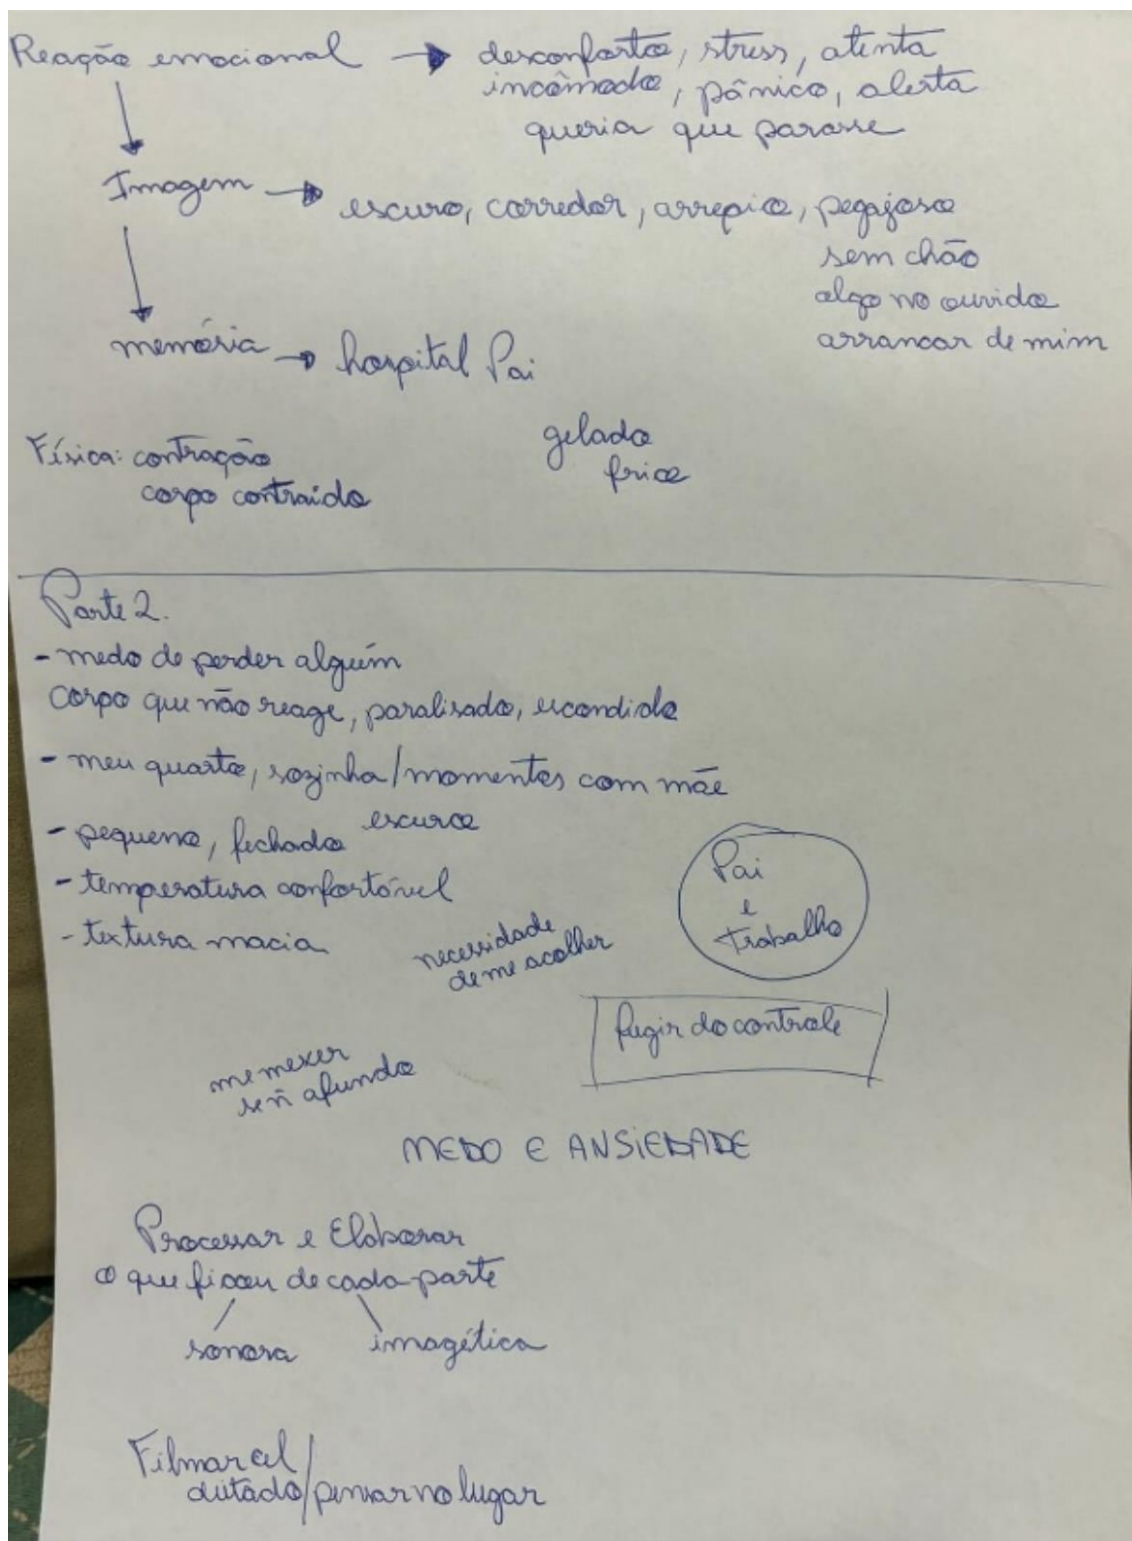 Reação emocional → desconforto, stress, atenta
incômodo, pânico, alerta
queria que parasse
Imagem → escuro, corredor, arrepio, pegajoso
sem chão
algo no ouvido
arrancar de mim
memória → hospital Pai
gelado
frio
Física: contração
corpo contraído
Parte 2.
- medo de perder alguém
corpo que não reage, paralisado, escondido
- meu quarto, sozinha/momentos com mãe
- pequeno, fechado escuro
- temperatura confortável
- textura macia
necessidade
de me acolher
Pai
e
trabalho
fugir do controle
me mexer
senñ afundo
MEDO E ANSIEDADE
Processar e Elaborar
o que ficou de cada parte
sonora imagética
Filmar cel/
deitado/pensar no lugar